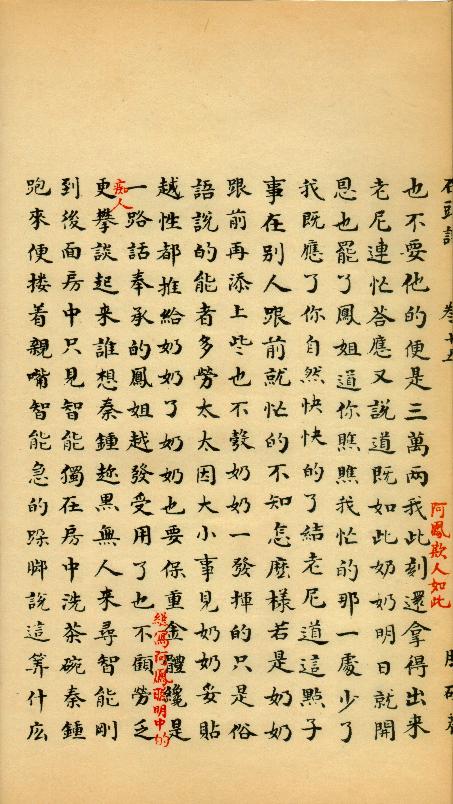 石頭記 卷十五 脂硯齋
也不要他的便是三萬兩我此刻還拿得出來
阿鳳欺人如此
老尼連忙荅應又說道既如此奶奶明日就開
恩也罷了鳳姐道你瞧瞧我忙的那一處少了
我既應了你自然快快的了結老尼道這點子
事在別人跟前就忙的不知怎麽樣若是奶奶
跟前再添上些也不彀奶奶一發揮的只是俗
語說的能者多勞太太因大小事見奶奶妥貼
越性都推給奶奶了奶奶也要保重金體纔是
一路話奉承的鳳姐越發受用了也不顧勞乏
總寫阿鳳聰明中的
痴人
更攀談起來誰想秦鍾趂黑無人來尋智能剛
到後面房中只見智能獨在房中洗茶碗秦鍾
跑來便摟着親嘴智能急的跺脚說這筭什庅